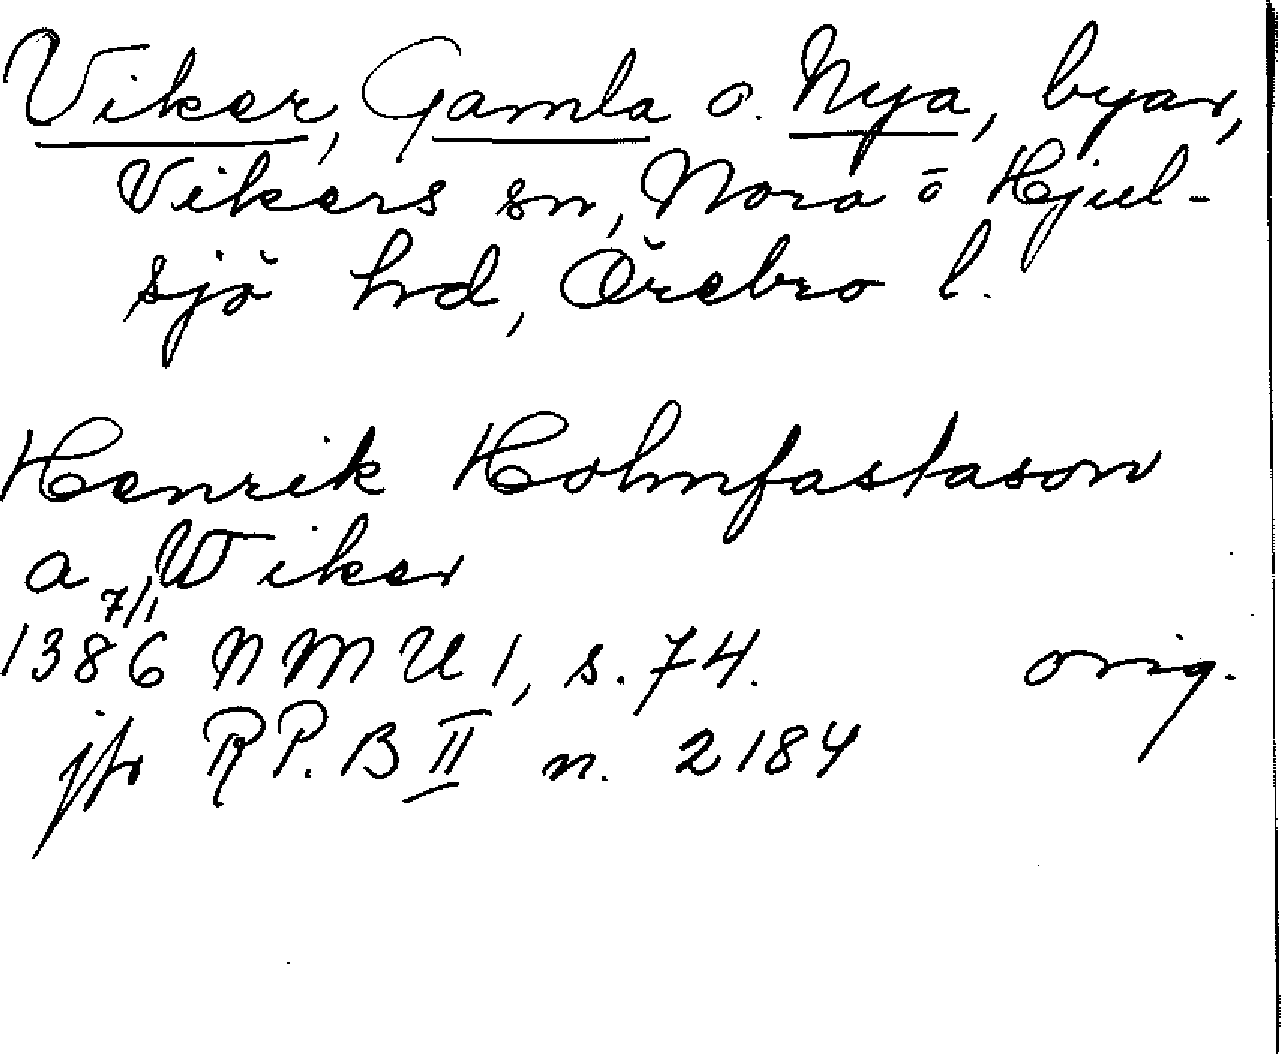 Viker, Gamla o. Nya, byar,
Vikers sn, Nora o Hjul-
sjö hrd, Örebro l.
Henrik Holmfastason
a Wiker
7/1
1386 NMU 1, s. 74. orig.
jfr RP. B II n. 2184